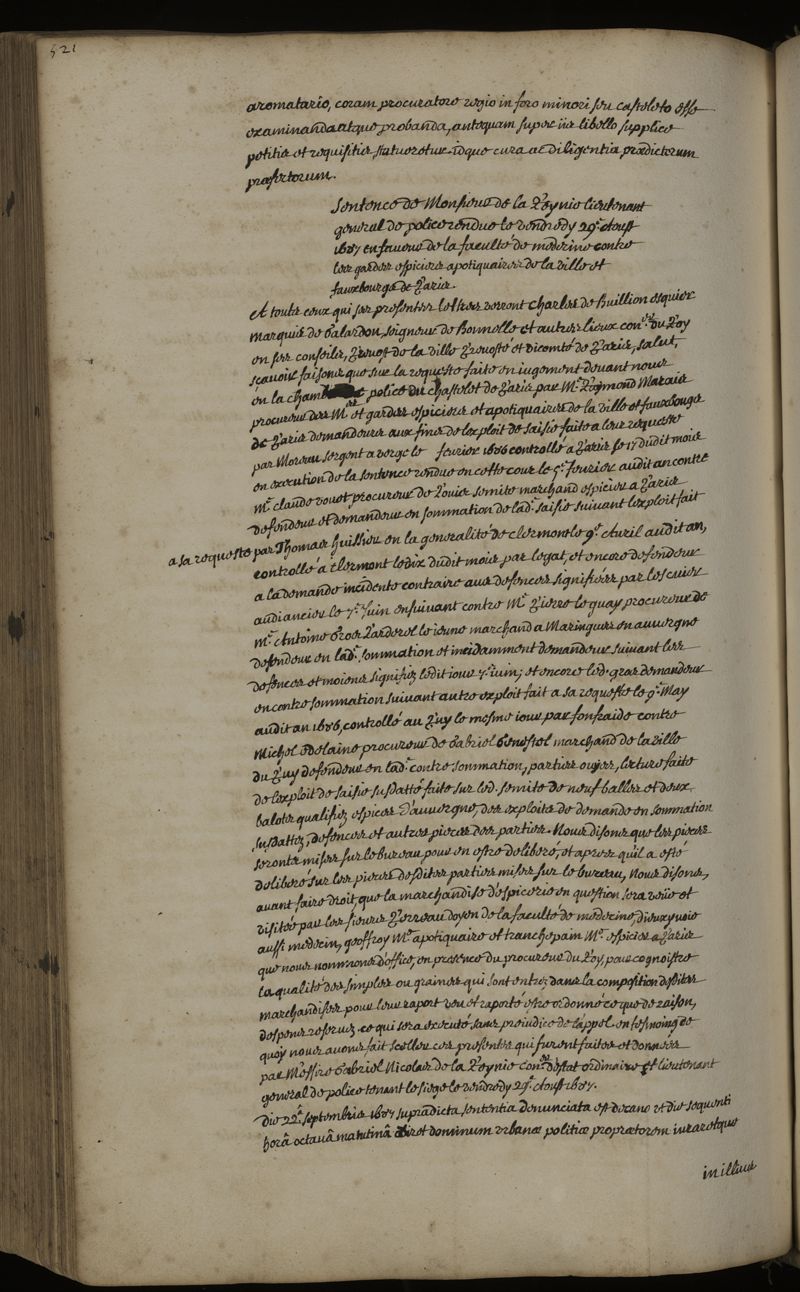 521
aromatario, coram procuratore regio in foro minori seu castoleto esse
examinandam atque probandam, antequam super iis libello supplice
petitis et requisitis statueretur idque cura ac diligentia prædictorum
præfectorum.
Sentence de Monsieur de la Reynie lieutenant
general de police rendue le vendredy 29.e Aoust
1687 en faveur de la faculté de medecine contre
les gardes espiciers apotiquaires de la ville et
fauxbourgs de Paris.
A touts ceux qui ses presentes lettres verront Charles de Bullion esquier
Marquis de Galardon, seigneur de Bonnelle et autres lieux con.er du Roy
en ses conseils, Prevost de la ville Prevosté et vicomté de Paris, salut,
sçavoir faisons que sur la requeste faite en jugement devant nous
en la chambre police du chastelet de Paris par M.e Raymond Marais
procureur des M.es et gardes espiciers et apotiquaires de la ville et fauxbougs
de Paris demandeurs aux fins de l'exploit de saisie faite a leur requeste
par Moreau sergent a verge le fevrier 1686 controllé a Paris le 17 dudit mois
en execution de la sentence rendue en cette cour le 5.e fevrier audit an contre
M.e claude vouet procureur de Louis semite marchand espicier a Paris
defendeur et demandeur en sommation de lad.e saisie suivant l'exploit fait
a sa requeste par Thomas huissier en la generalité de clermont le 9.e Avril audit an,
controllé a clermont le dix dudit mois par legat, et encore defendeur
a la demande incidente contraire aux defences signifiées par lescuier
audiancier le 7.e Juin ensuivant contre M.e Pierre le quay procureur de
M.e Antoine Gros Larderol le jeune marchand a Maringues en auvergne
defendeur en lad.e sommation et incidamment demandeur suivant les
defences et moiens signifiez ledit jour 7.e juin; et encore led. gros demandeur
en contre sommation suivant autre exploit fait a sa requeste le 9.e May
audit an 1686, controllé au Puy le mesme jour par fonfraide contre
Michel Odelaine procureur de Gabriel Genestel marchand de la ville
du Puy defendeur en lad.e contre sommation, parties oujes, lecture faite
de l'exploit de saisie susdatté faite sur led. semite de neuf balles et deux
balots qualifiez espices d'auvergne, des exploits de demande en sommation
susdattez, defences et autres pieces des parties. Nous disons que les pieces
seront mises sur le bureau pour en estre deliberé, et apres qu'il a esté
deliberé sur les pieces desdites parties mises sur le bureau, Nous disons,
avant faire droit, que la marchandise d'espicerie en question sera veüe et
visitée par les sieurs Perreau doyen de la faculté de medecine, dieuxyvoie
aussi medecin, geoffroy M.e apotiquaire et tranchepain M.e espicier a Paris
que nous nommons d'office, en presence du procureur du Roy, pour cognoistre
la qualité des simples ou graines qui sont entrez dans la composition desdites
marchandises pour leur raport veu et raporté estre ordonné ce que de raison,
despens reservez. ce qui sera executé sans prejudice de l'appel. en tesmoing de
quoy nous avons fait sceller ces presentes qui furent faites et données
par Messire Gabriel Nicolas de la Reynie con.er d'estat ordinaire et lieutenant
general de police tenant le siege le vendredy 29.e Aoust 1687.
Die 22.a septembris 1687 supradicta sententia denunciata est decano et die sequenti
horâ octavâ matutinâ adiret dominum urbanæ politiæ proprætorem juraretque
in illius